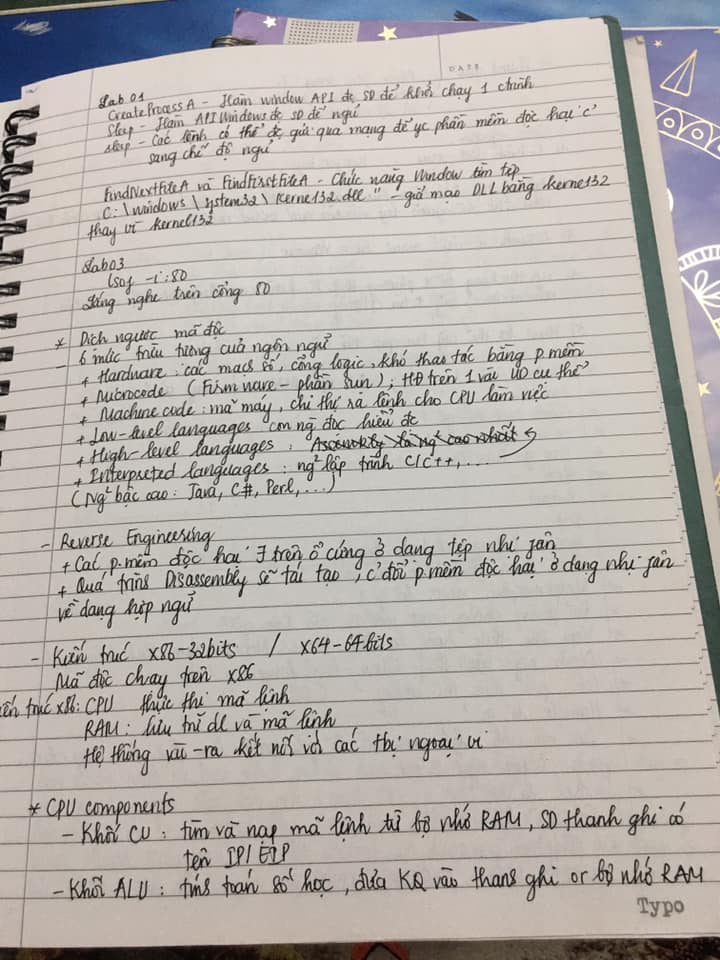 DATE
Lab 01
CreateProcessA - Hàm window API đc SD để khởi chạy 1 ctrình
Sleep - Hàm API Windows đc SD để ngủ
sleep - Các lệnh có thể đc gửi qua mạng để yc phần mềm độc hại c'
sang chế độ ngủ
FindNextFileA và FindFirstFileA - Chức năng Window tìm tệp
C:\windows\system32\kerne132.dll" - giả mạo DLL bằng kerne132
thay vì kernel132
Lab03
lsof -i:80
Lắng nghe trên cổng 80
* Dịch ngược mã độc
- 6 mức trừu tượng của ngôn ngữ
+ Hardware: các mạch số, cổng logic, khó thao tác bằng p.mềm
+ Microcode (Firmware - phần sụn), HĐ trên 1 vài cụ thể
+ Machine code: mã máy, chỉ thị ra lệnh cho CPU làm việc
+ Low-level languages con ng đọc hiểu đc
+ High-level languages: Assembly là ng² cao nhất
+ Interpreted languages: ng² lập trình C/C++,...
(Ng² bậc cao: Java, C#, Perl,...)
- Reverse Engineering
+ Các p.mềm độc hại ∃ trên ổ cứng ở dạng tệp nhị fân
+ Quá trình Disassembly sẽ tái tạo, c' đổi p.mềm độc hại ở dạng nhị fân
về dạng hợp ngữ
- Kiến trúc x86-32bits / x64-64bits
Mã độc chạy trên x86
ến trúc x86: CPU thực thi mã lệnh
RAM: lưu trữ dl và mã lệnh
Hệ thống vào-ra kết nối với các tbị ngoại vi
* CPU components
- Khối CU: tìm và nạp mã lệnh từ bộ nhớ RAM, SD thanh ghi có
tên IP/EIP
- Khối ALU: tính toán số học, đưa KQ vào thanh ghi or bộ nhớ RAM
Typo